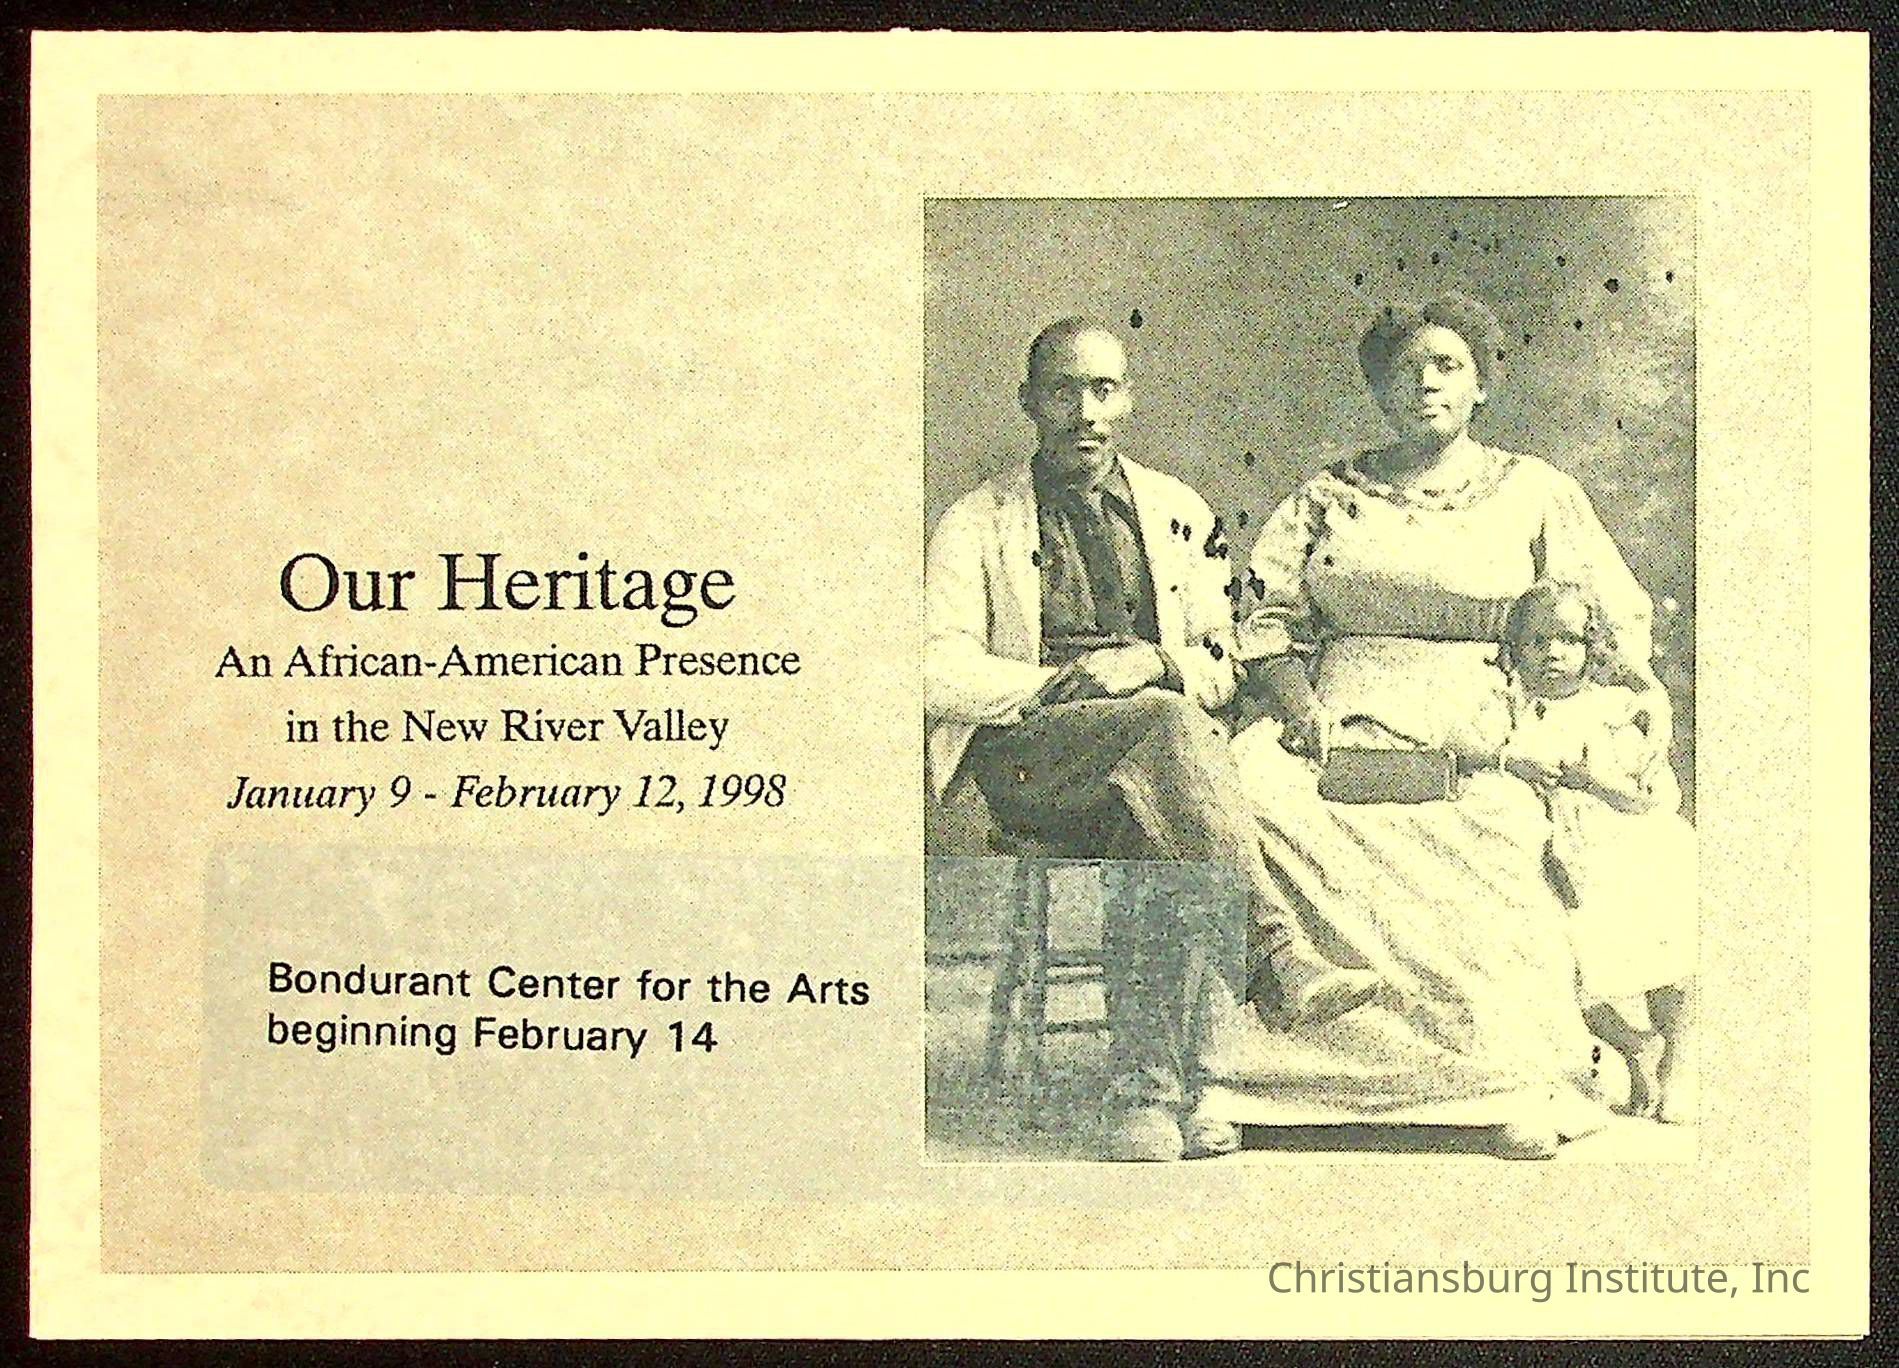 Our Heritage
An African-American Presence
in the New River Valley
January 9 - February 12, 1998
Bondurant Center for the Arts
beginning February 14
Christiansburg Institute, Inc